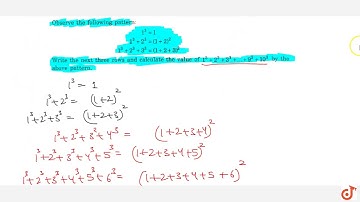 Observe the following pattern
1³ = 1
1³ + 2³ = (1 + 2)²
1³ + 2³ + 3³ = (1 + 2 + 3)²
Write the next three rows and calculate the value of 1³ + 2³ + 3³ + .... + 9³ + 10³ by the
above pattern.
1³ = 1
1³+2³ = (1+2)²
1³+2³+3³ = (1+2+3)²
1³+2³+3³+4³ = (1+2+3+4)²
1³+2³+3³+4³+5³= (1+2+3+4+5)²
1³+2³+3³+4³+5³+6³= (1+2+3+4+5+6)²
doubtnut